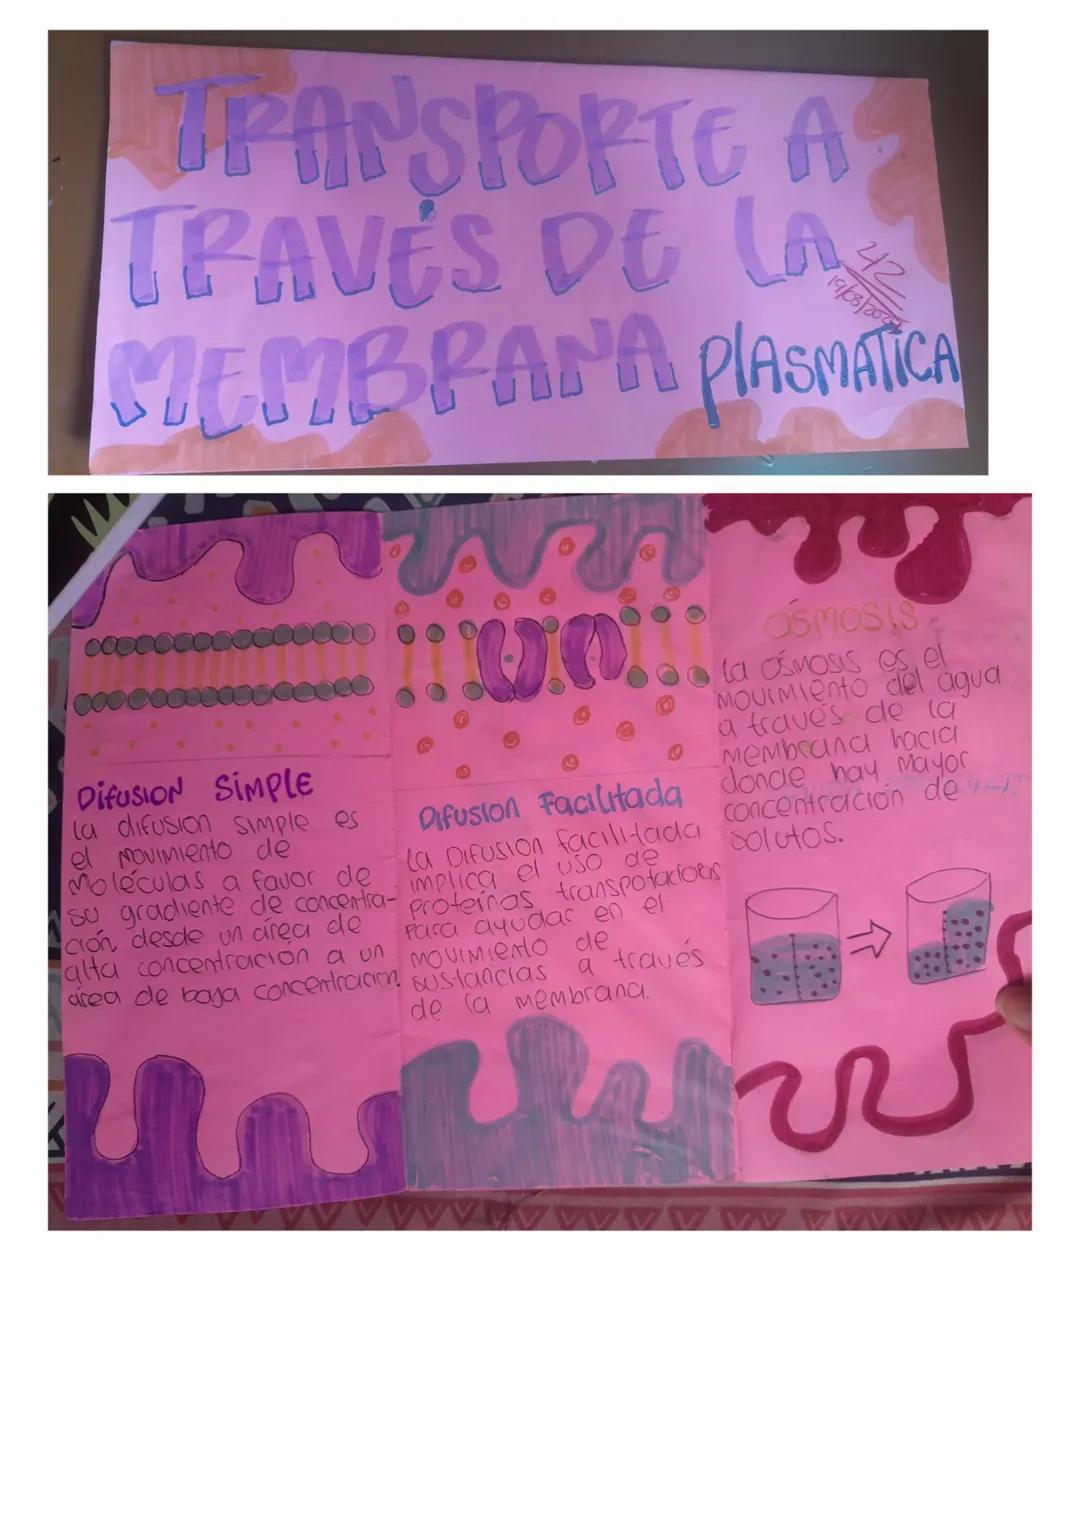 TRANSPORTE A
TRAVÉS DE LA
MEMBRANA PlASMATICA
42
DIFUSION SIMPLE
La difusion simple es
el movimiento de
Moléculas a favor de
su gradiente de concentra-
ción desde un área de
alta concentracion a un
área de baja concentracion.
Difusion Facilitada
La Difusion facilitada
implica el uso de
proteínas transpotadoras
para ayudar en el
movimiento de
sustancias a través
de la membrana.
OSMOSIS
La ósmosis es el
movimiento del agua
a través de la
membrana hacia
donde hay Mayor
concentración de
solutos.